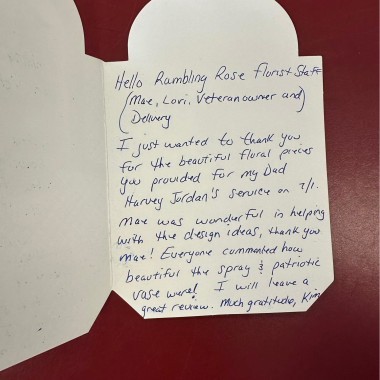 Hello Rambling Rose Florist Staff
(Mae, Lori, Veteran owner and)
(Delivery
I just wanted to thank you
for the beautiful floral pieces
you provided for my Dad
Harvey Jordan's service on 7/1.
Mae was wonderful in helping
with the design ideas, thank you
Mae! Everyone commented how
beautiful the spray & patriotic
vase were! I will leave a
great review. Much gratitude, Kim